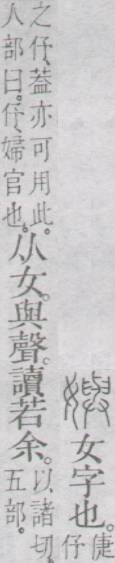 嬩女字也。倢伃
之伃、葢亦可用此。人部曰。伃、婦官也。从女。與聲。讀若余。以諸切。五部。